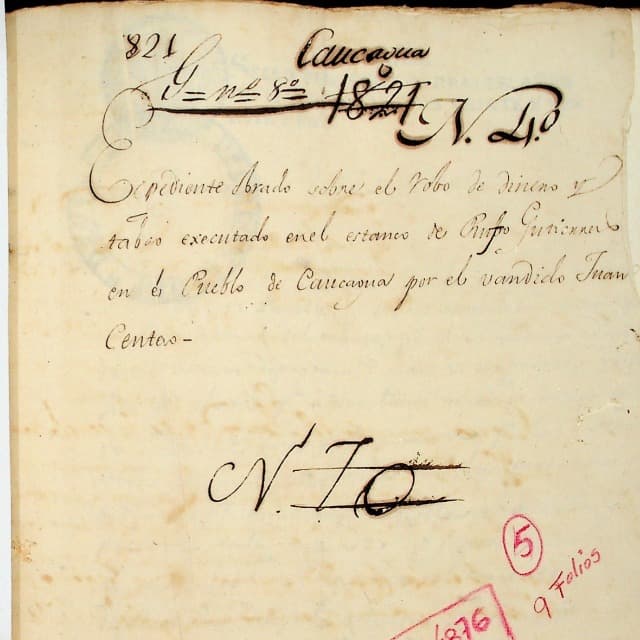 821
Caucagua
G= nº 8º
1821
N. 4.º
Expediente Obrado sobre el robo de dinero y
tabaco executado en el estanco de Rufo Gutierres
en el Pueblo de Caucagua por el vandido Juan
Centeno-
N. 70
5
9 Folios
4876